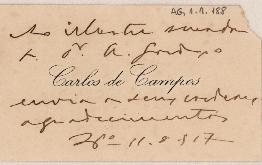 AG, 1.1.188
Ao illustre senador
Dr. A. Gordo
Carlos de Campos
envia os seus cordeaes
agradecimentos
11-8-917